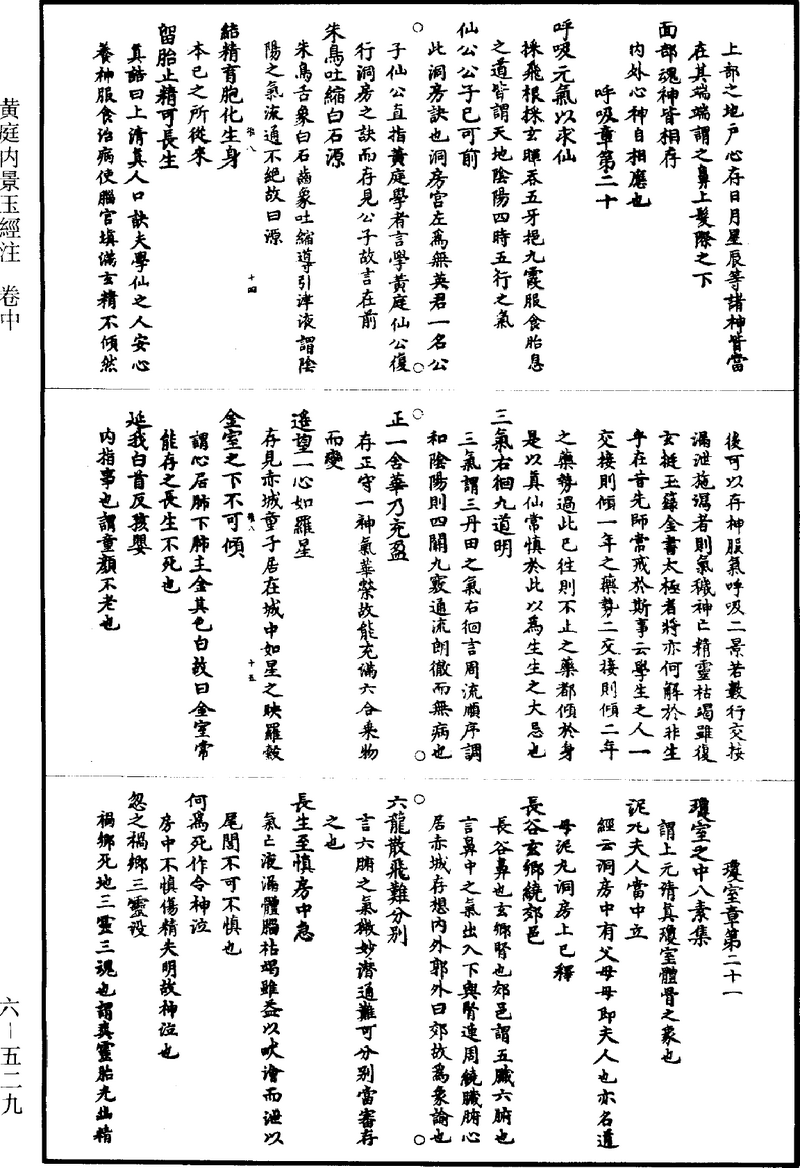 上部之地户心存日月星辰等諸神皆當
在其端端謂之鼻上髮際之下
面部魂神皆相存
內外心神自相應也
呼吸章第二十
呼吸元氣以求仙
採飛根採玄暉吞五牙挹九霞服食胎息
之道皆謂天地陰陽四時五行之氣
仙公公子已可前
此洞房訣也洞房宮左為無英君一名公
子仙公直指黃庭學者言學黃庭仙公復
行洞房之訣而存見公子故言在前
朱鳥吐縮白石源
朱鳥舌象白石齒象吐縮導引津液謂陰
陽之氣流通不絕故曰源
結精育胞化生身
本已之所從來
留胎止精可長生
真誥曰上清真人口訣夫學仙之人安心
養神服食治病使腦宮填滿玄精不傾然
後可以存神服氣呼吸二景若數行交接
漏泄施瀉者則氣穢神亡精靈枯竭雖復
玄挺玉籙金書太極者將亦何解於非生
乎在昔先師常戒於斯事云學生之人一
交接則傾一年之藥勢二交接則傾二年
之藥勢過此已往則不止之藥都傾於身
是以真仙常慎於此以為生生之大忌也
三氣右徊九道明
三氣謂三丹田之氣右徊言周流順序調
和陰陽則四關九竅通流朗徹而無病也
正一含華乃充盈
存正守一神氣華榮故能充滿六合乘物
而變
遥望一心如羅星
存見赤城童子居在城中如星之映羅縠
金室之下不可傾
謂心居肺下肺主金其色白故曰金室常
能存之長生不死也
延我白首反孩嬰
內指事也謂童顏不老也
瓊室章第二十一
瓊室之中八素集
謂上元清真瓊室體骨之象也
泥丸夫人當中立
經云洞房中有父母母即夫人也亦名道
母泥丸洞房上已釋
長谷玄鄉繞郊邑
長谷鼻也玄鄉腎也郊邑謂五臟六腑也
言鼻中之氣出入下與腎連周繞臟腑心
居赤城存想內外郭外曰郊故為象諭也
六龍散飛難分別
言六腑之氣微妙潛通難可分別當審存
之也
長生至慎房中急
氣亡液漏體腦枯竭雖益以吠澮而泄以
尾閭不可不慎也
何為死作令神泣
房中不慎傷精失明故神泣也
忽之禍鄉三靈歿
禍鄉死地三靈三魂也謂爽靈胎光幽精
黄庭内景玉經注　卷中
六－五二九